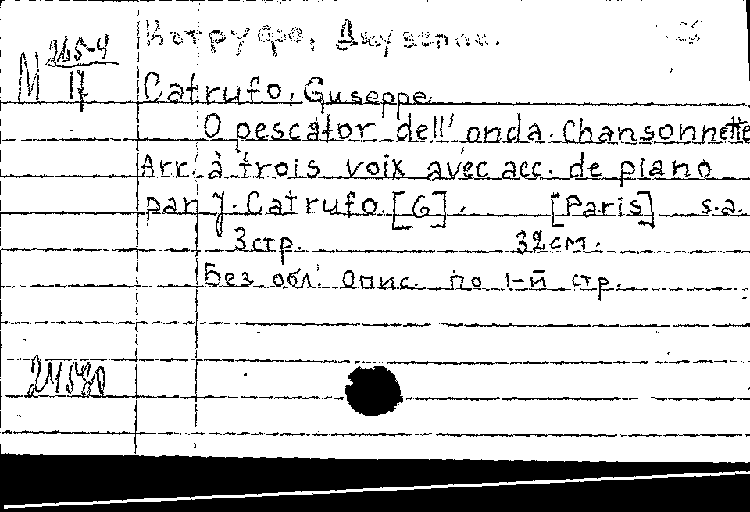 Котруфо, Джузеппе.
М 245-4
17
Catrufo, Guseppe.
O pescator dell' onda. Chansonnette
Arr. à trois voix avec acc. de piano
par J. Catrufo. [G]. [Paris] s.a.
3 стр. 32 см.
Без обл. Опис. по 1-й стр.